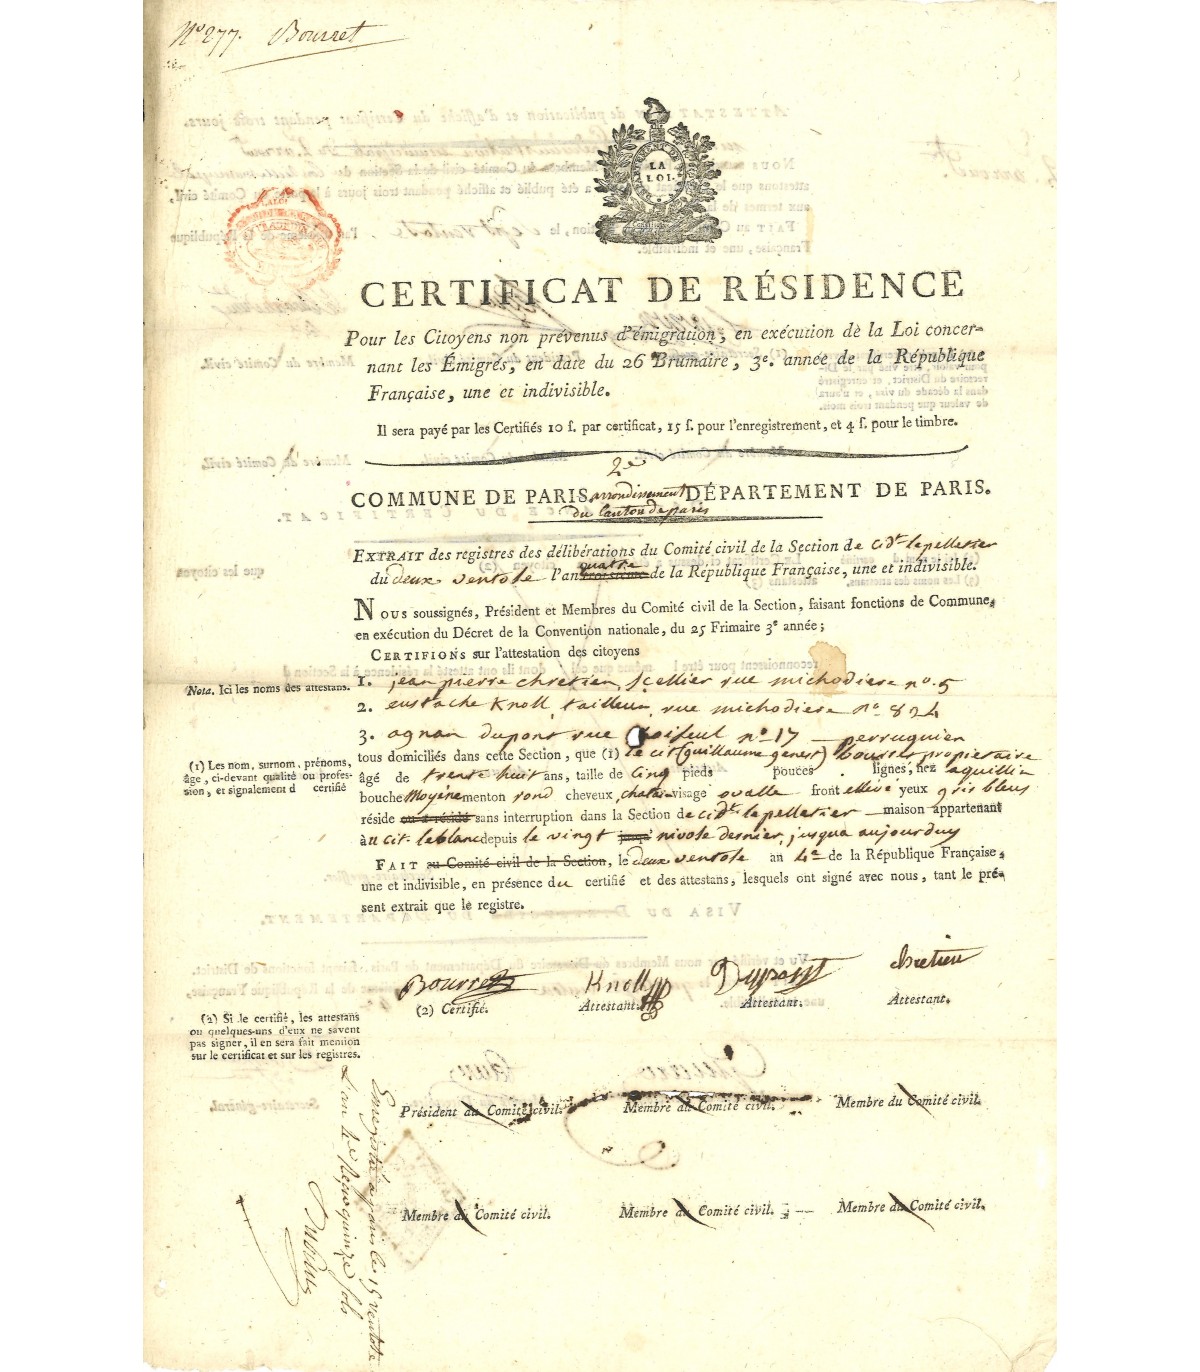 N° 277. Bourret
LA
LOI.
CERTIFICAT DE RÉSIDENCE
Pour les Citoyens non prévenus d'émigration, en exécution dè la Loi concer-
nant les Émigrés, en date du 26 Brumaire, 3e. année de la République
Française, une et indivisible.
Il sera payé par les Certifiés 10 ſ. par certificat, 15 ſ. pour l'enregistrement, et 4 ſ. pour le timbre.
2e
COMMUNE DE PARIS arrondissement DÉPARTEMENT DE PARIS.
du Canton de paris
EXTRAIT des registres des délibérations du Comité civil de la Section de cidt. lepelletier
quatre
du deux ventose l'an troisième de la République Française, une et indivisible.
NOUS soussignés, Président et Membres du Comité civil de la Section, faisant fonctions de Commune,
en exécution du Décret de la Convention nationale, du 25 Frimaire 3e année;
CERTIFIONS sur l'attestation des citoyens
Nota. Ici les noms des attestans.
1. jean pierre chretien, Scellier rue michodiere no. 5
2. eustache Knoll, tailleur, rue michodiere no 824
3. agnan dupont rue no 17 perruquier
tous domiciliés dans cette Section, que (1) le cit (guillaume genest) bourret propietaire
(1) Les nom, surnom, prénoms,
âge, ci-devant qualité ou profes-
sion, et signalement d certifié
âgé de trente huit ans, taille de Cinq pieds pouces lignes, nez aquillin
bouche Moyène menton rond cheveux, chatai visage ovalle front ellevé yeux gris bleus
réside ou a résidé sans interruption dans la Section de cidt. lepelletier maison appartenant
àu cit. leblanc depuis le vingt jusqu' nivose dernier, jusqua aujourduy
FAIT au Comité civil de la Section, le deux ventose an 4e de la République Française,
une et indivisible, en présence du certifié et des attestans, lesquels ont signé avec nous, tant le pré-
sent extrait que le registre.
Bourret Knoll Dupont chretien
(2) Certifié. Attestant. Attestant. Attestant.
(2) Si le certifié, les attestans
ou quelques-uns d'eux ne savent
pas signer, il en sera fait mention
sur le certificat et sur les registres.
Président du Comité civil. Membre du Comité civil. Membre du Comité civil.
Membre du Comité civil. Membre du Comité civil. Membre du Comité civil.
Enregistré à paris le 15 ventose
L'an 4e Reçu quinze sols